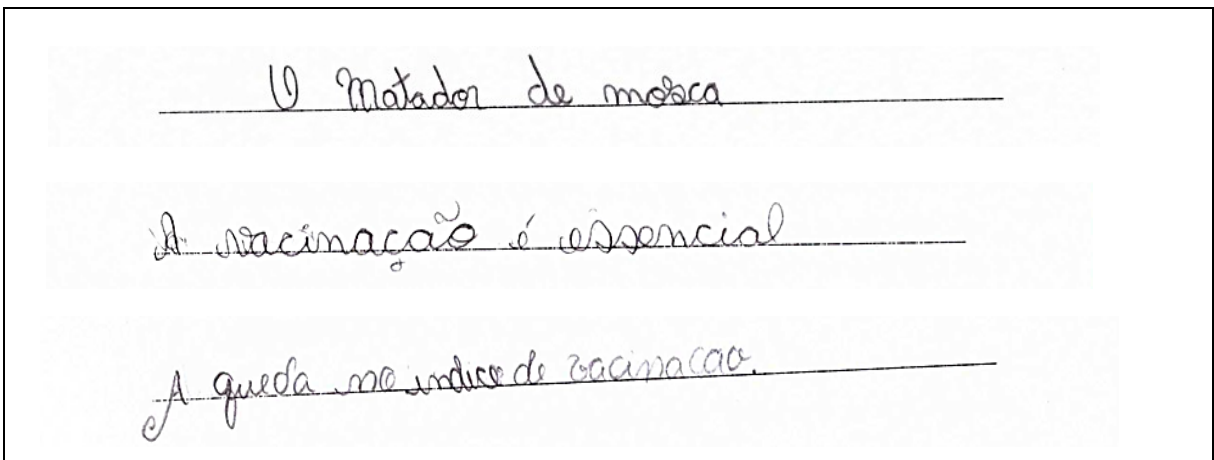 O Matador de mosca
A vacinação é essencial
A queda no indice de vacinacao.